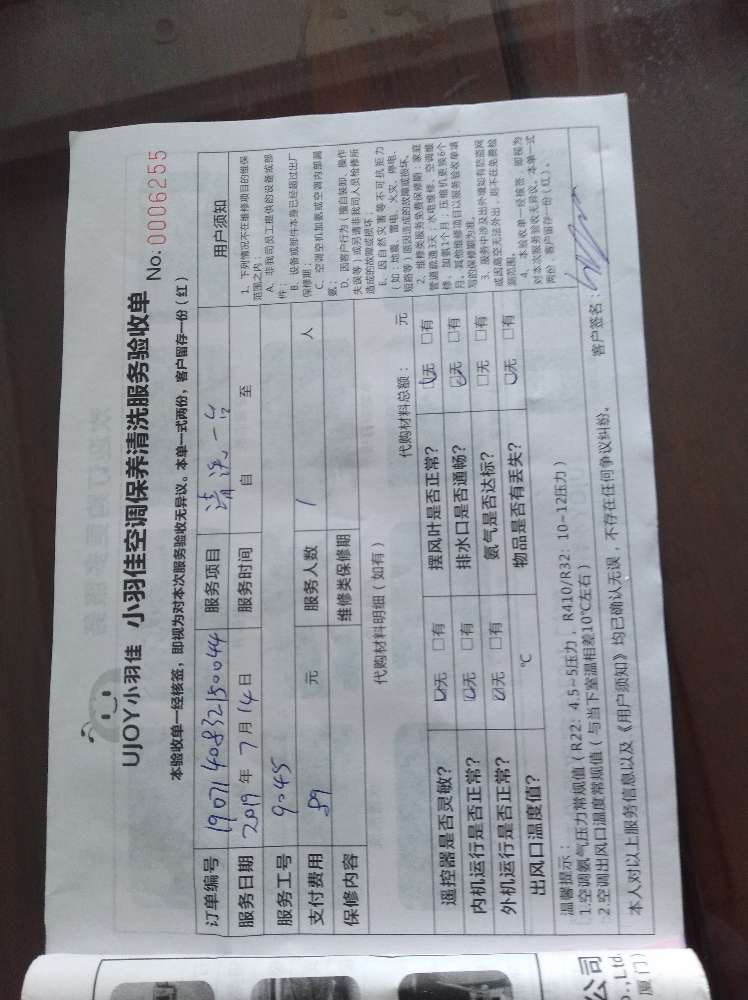 UJOY小羽佳 小羽佳空调保养清洗服务验收单 No.0006255
本验收单一经核签，即视为对本次服务验收无异议。本单一式两份，客户留存一份（红）
订单编号 1907140832150044 服务项目 清洗一台
服务日期 2019年7月14日 服务时间 自 至
服务工号 9045
支付费用 89 元 服务人数 1 人
保修内容 维修类保修期
代购材料明细（如有） 代购材料总额： 元
遥控器是否灵敏？ ☑无 □有 摆风叶是否正常？ ☑无 □有
内机运行是否正常？ ☑无 □有 排水口是否通畅？ ☑无 □有
外机运行是否正常？ ☑无 □有 氨气是否达标？ □无 □有
出风口温度值？ ℃ 物品是否有丢失？ ☑无 □有
用户须知
1、下列情况不在维修项目的维保
范围之内：
A、非我司员工提供的设备或部
件；
B、设备或部件本身已经超过出厂
保修期；
C、空调空机加氨或空调内部漏
氨；
D、因客户行为（擅自装卸、操作
失误等）或另请非我司人员检修所
造成的故障或损坏；
E、因自然灾害等不可抗拒力
（如：地震、雷电、火灾、停电、
短路等）原因造成的故障或损坏。
2、维修类服务免费保修期：家庭
管道疏通3天，水电维修、空调维
修、加氨1个月；压缩机更换6个
月。其他维修项目以服务验收单填
写的保修期为准。
3、服务中涉及出外墙如有防盗网
或因高空无法外出，则不在免费检
测范围。
4、本验收单一经核签，即视为
对本次服务验收无异议。本单一式
两份，客户留存一份（红）。
温馨提示：
1.空调氨气压力常规值（R22：4.5~5压力，R410/R32：10~12压力）
2.空调出风口温度常规值（与当下室温相差10℃左右）
本人对以上服务信息以及《用户须知》均已确认无误，不存在任何争议纠纷。 客户签名：
公司
.,Ltd.
厦门）